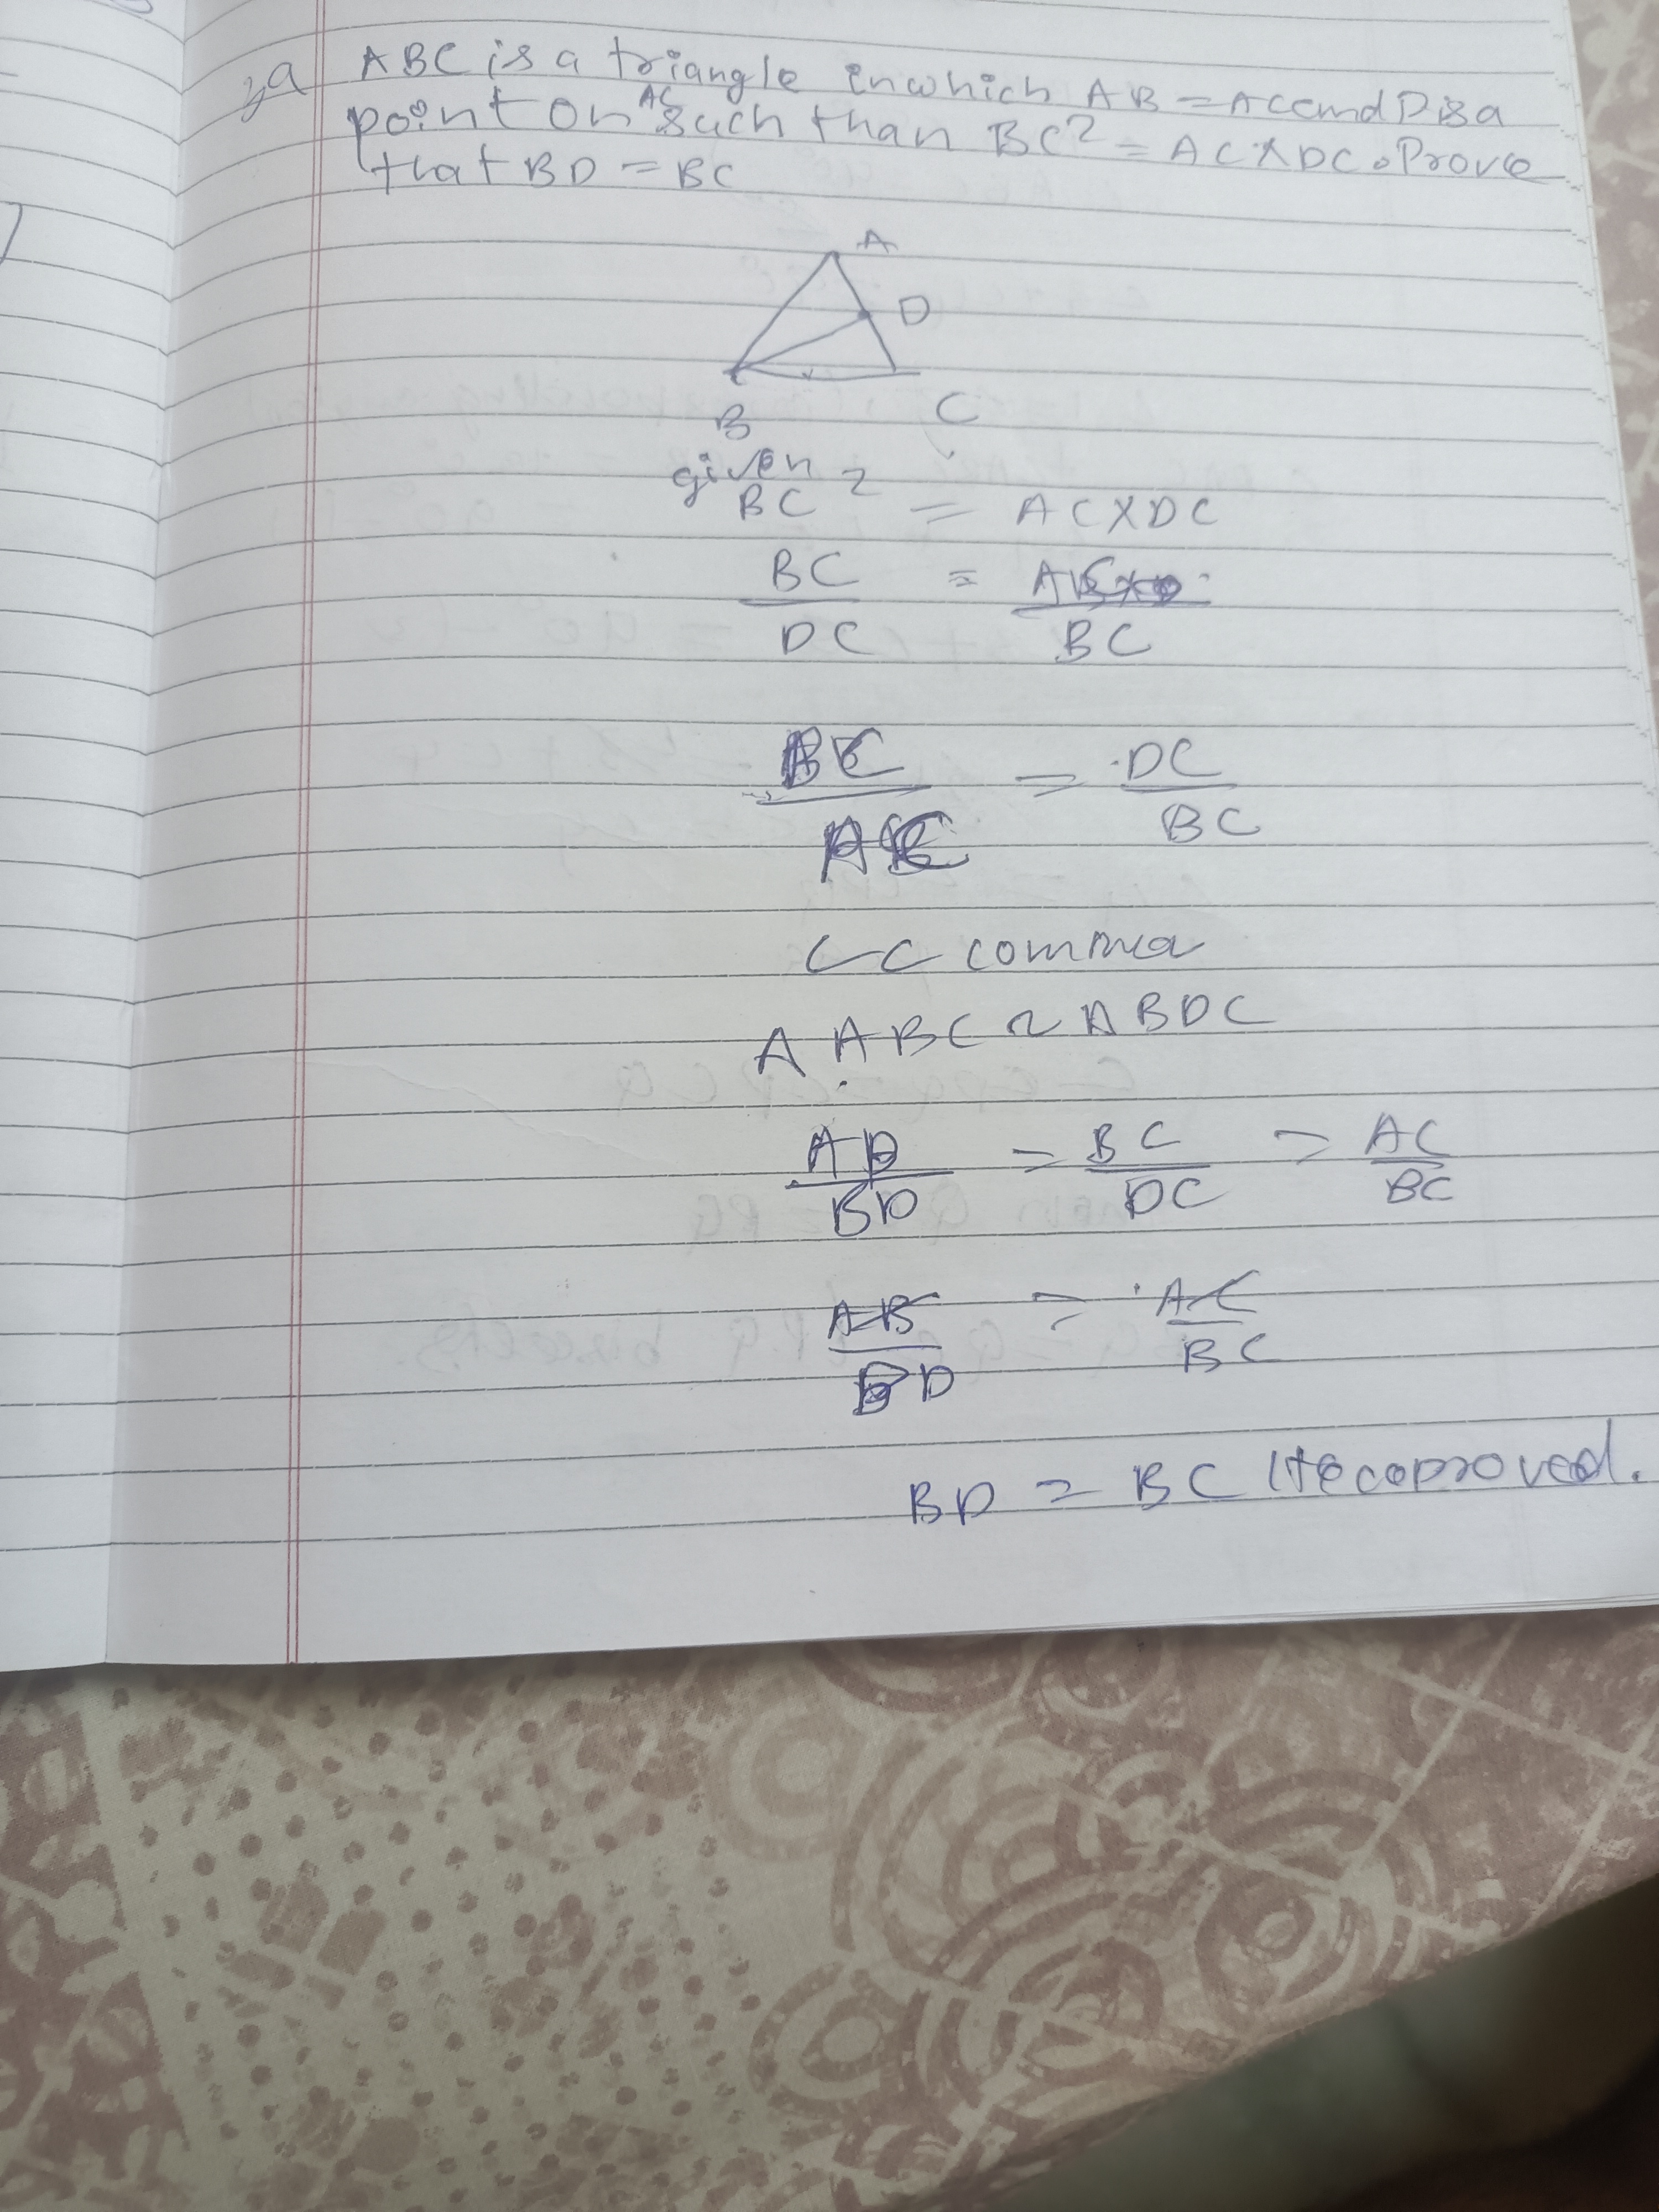 3a ABC is a triangle in which AB = AC and D is a
point on AC such than BC² = AC X DC. Prove
that BD = BC
A
D
B
C
given
BC² = AC X DC
BC/DC = AC/BC
BC/AC = DC/BC
∠C common
Δ ABC ~ Δ BDC
AB/BD = BC/DC = AC/BC
AB/BD = AC/BC
BD = BC Hecoproved.